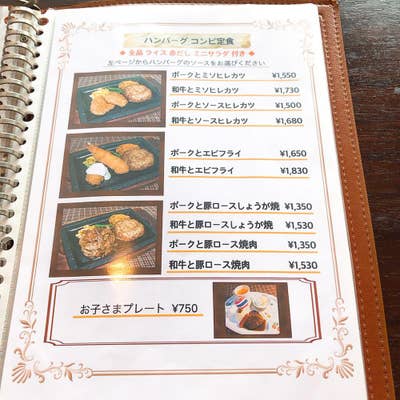 ハンバーグ コンビ定食
◆ 全品 ライス 赤だし ミニサラダ 付き ◆
左ページからハンバーグのソースをお選びください
ポークとミソヒレカツ ¥1,550
和牛とミソヒレカツ ¥1,730
ポークとソースヒレカツ ¥1,500
和牛とソースヒレカツ ¥1,680
ポークとエビフライ ¥1,650
和牛とエビフライ ¥1,830
ポークと豚ロースしょうが焼 ¥1,350
和牛と豚ロースしょうが焼 ¥1,530
ポークと豚ロース焼肉 ¥1,350
和牛と豚ロース焼肉 ¥1,530
お子さまプレート ¥750